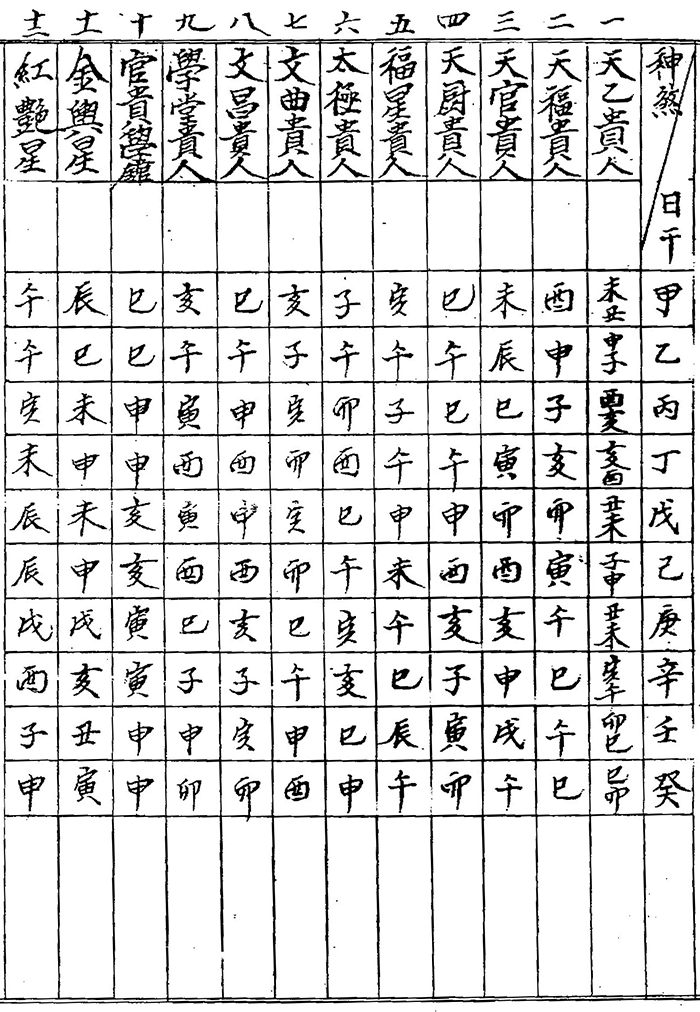 神煞 日干 甲 乙 丙 丁 戊 己 庚 辛 壬 癸
一 天乙貴人 未丑 申子 酉亥 亥酉 丑未 子申 丑未 寅午 卯巳 巳卯
二 天福貴人 酉 申 子 亥 卯 寅 午 巳 午 巳
三 天官貴人 未 辰 巳 寅 卯 酉 亥 申 戌 午
四 天厨貴人 巳 午 巳 午 申 酉 亥 子 寅 卯
五 福星貴人 寅 午 子 午 申 未 午 巳 辰 午
六 太極貴人 子 午 卯 酉 巳 午 寅 亥 巳 申
七 文曲貴人 亥 子 寅 卯 寅 卯 巳 午 申 酉
八 文昌貴人 巳 午 申 酉 申 酉 亥 子 寅 卯
九 學堂貴人 亥 午 寅 酉 寅 酉 巳 子 申 卯
十 官貴學館 巳 巳 申 申 亥 亥 寅 寅 申 申
十一 金輿星 辰 巳 未 申 未 申 戌 亥 丑 寅
十二 紅艷星 午 午 寅 未 辰 辰 戌 酉 子 申